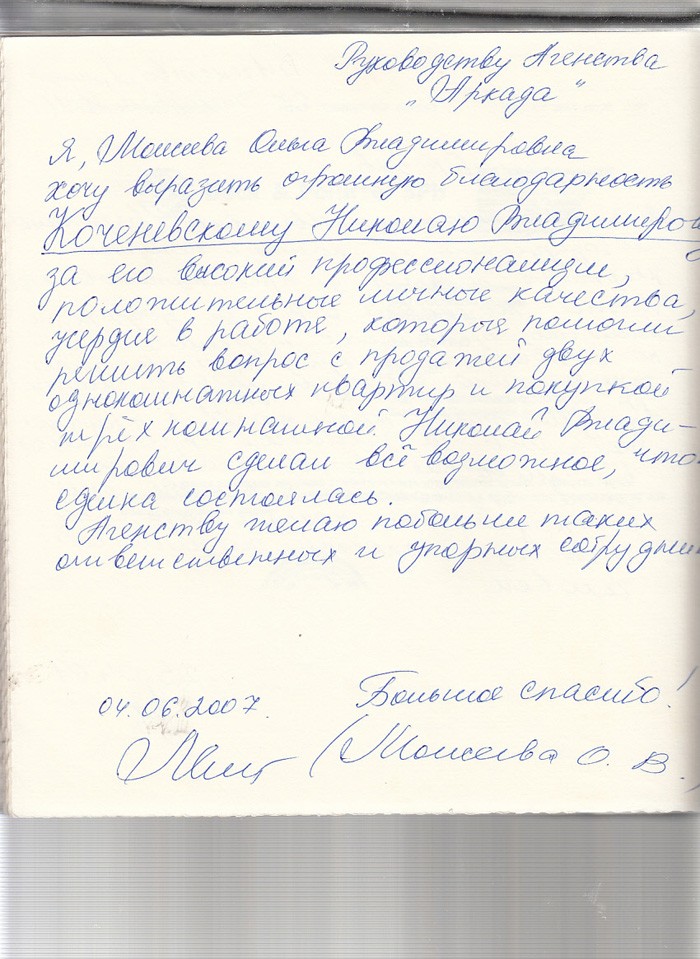 Руководству Агенства
„Аркада“
Я, Моисеева Ольга Владимировна
хочу выразить огромную благодарность
Коченевскому Николаю Владимиро
за его высокий профессионализм,
положительные личные качества,
усердие в работе, которые помогли
решить вопрос с продажей двух
однокомнатных квартир и покупкой
трёхкомнатной. Николай Влади-
мирович сделал всё возможное, что
сделка состоялась.
Агенству желаю побольше таких
ответственных и упорных сотрудник
Большое спасибо!
04.06.2007.
(Моисеева О. В.)